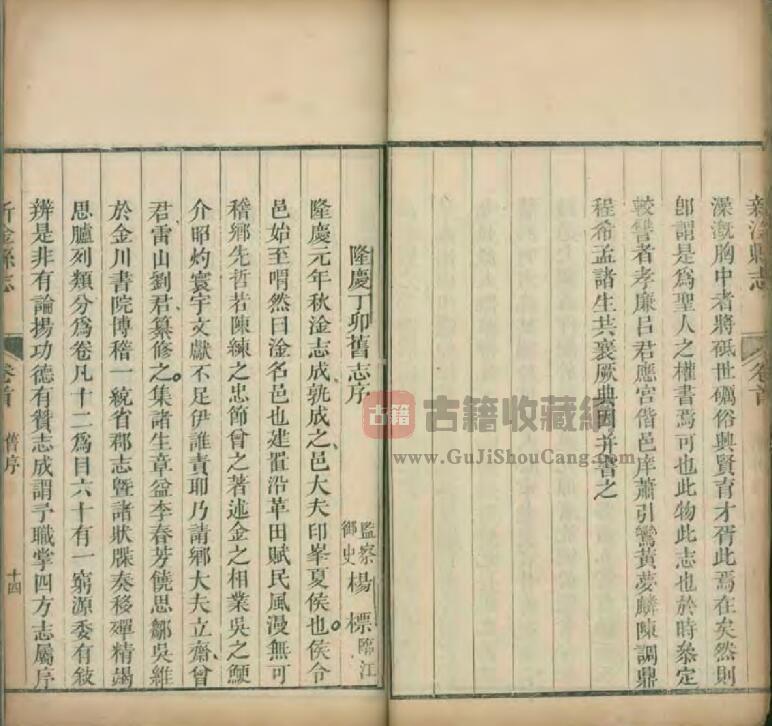 新淦縣志
卷首
澡漑胸中者將砥世礪俗興賢育才胥此焉在矣然則
卽謂是爲聖人之權書焉可也此物此志也於時叅定
較讐者孝廉呂君應宮偕邑庠蕭引鸞黃夢麟陳調鼎
程希孟諸生共襄厥典因并書之
隆慶丁卯舊志序
監察御史楊標臨江
隆慶元年秋淦志成孰成之邑大夫印峯夏侯也侯令
邑始至喟然曰淦名邑也建置沿革田賦民風漫無可
稽鄉先哲若陳練之忠節曾之著述金之相業吳之鯁
介昭灼寰宇文獻不足伊誰責耶乃請鄉大夫立齋曾
君雷山劉君纂修之集諸生章益李春芳饒思鄒吳維
於金川書院博稽一統省郡志暨諸狀牒奏移殫精竭
思臚列類分爲卷凡十二爲目六十有一窮源委有敍
辨是非有論揚功德有贊志成謂予職掌四方志屬序
新淦縣志
卷首
舊序
十四
古籍
古籍收藏網
www.GuJiShouCang.com